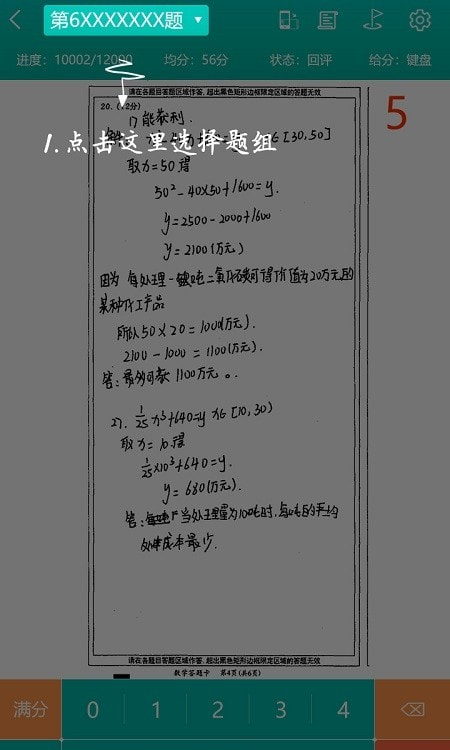 第6XXXXXXX题
进度：10002/12000 均分：56分 状态：回评 给分：键盘
请在各题目答题区域作答，超出黑色矩形边框限定区域的答题无效
5
20.（12分）
1) 能获利.
1.点击这里选择题组
∈[30,50]
取x=50得
50²-40×50+1600=y.
y=2500-2000+1600
y=2100(万元)
因为 每处理一吨二氧化碳可得价值为20万元的
某种化工产品
所以 50×20=1000(万元).
2100-1000=1100(万元).
答:最多可获1100万元。
2). 1/25 x³+640=y x∈[10,30)
取x=10得
1/25×10³+640=y.
y=680(万元).
答: 当处理量为100吨时,每吨的平均
处理成本最少.
请在各题目答题区域作答，超出黑色矩形边框限定区域的答题无效
数学答题卡 第4页(共6页)
满分 0 1 2 3 4